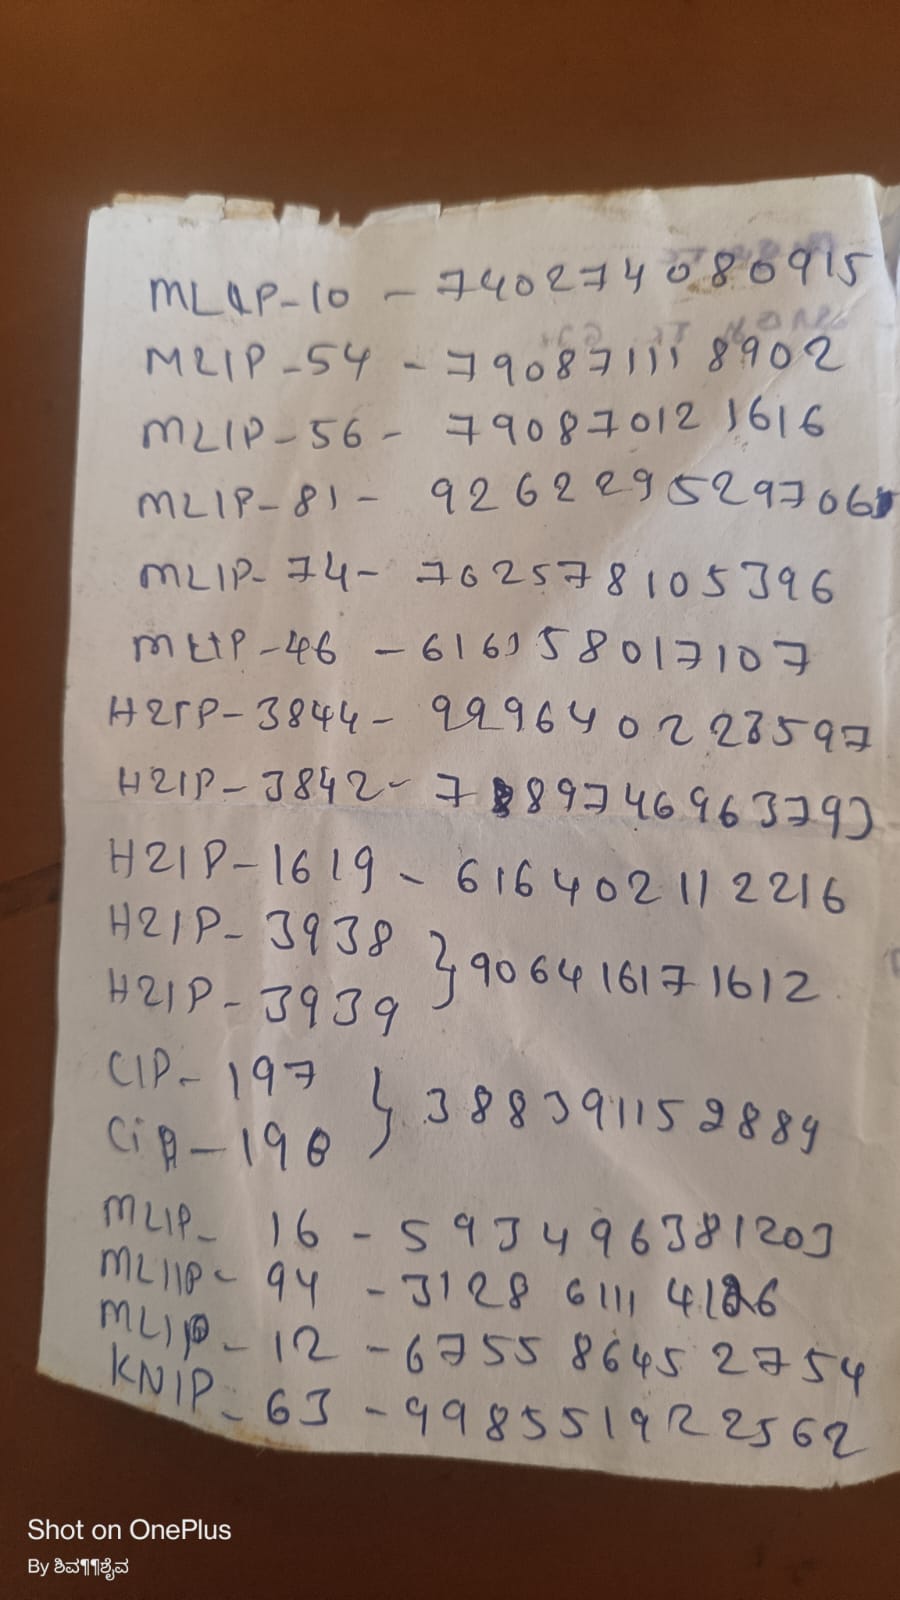 MLIP-10 - 740274080915
MLIP-54 - 790871118902
MLIP-56 - 790870121616
MLIP-81 - 926229529706
MLIP-74 - 762578105396
MLIP-46 - 616158017107
H2IP-3844 - 999640223597
H2IP-3842 - 789746963793
H2IP-1619 - 616402112216
H2IP-3938
H2IP-3939 } 906416171612
CIP-197
CIP-196 } 388391152889
MLIP-16 - 593496381203
MLIIP-94 - 312861114126
MLIP-12 - 675586452754
KNIP-63 - 998551922562
Shot on OnePlus
By ಶಿವ¶¶ಶೈವ